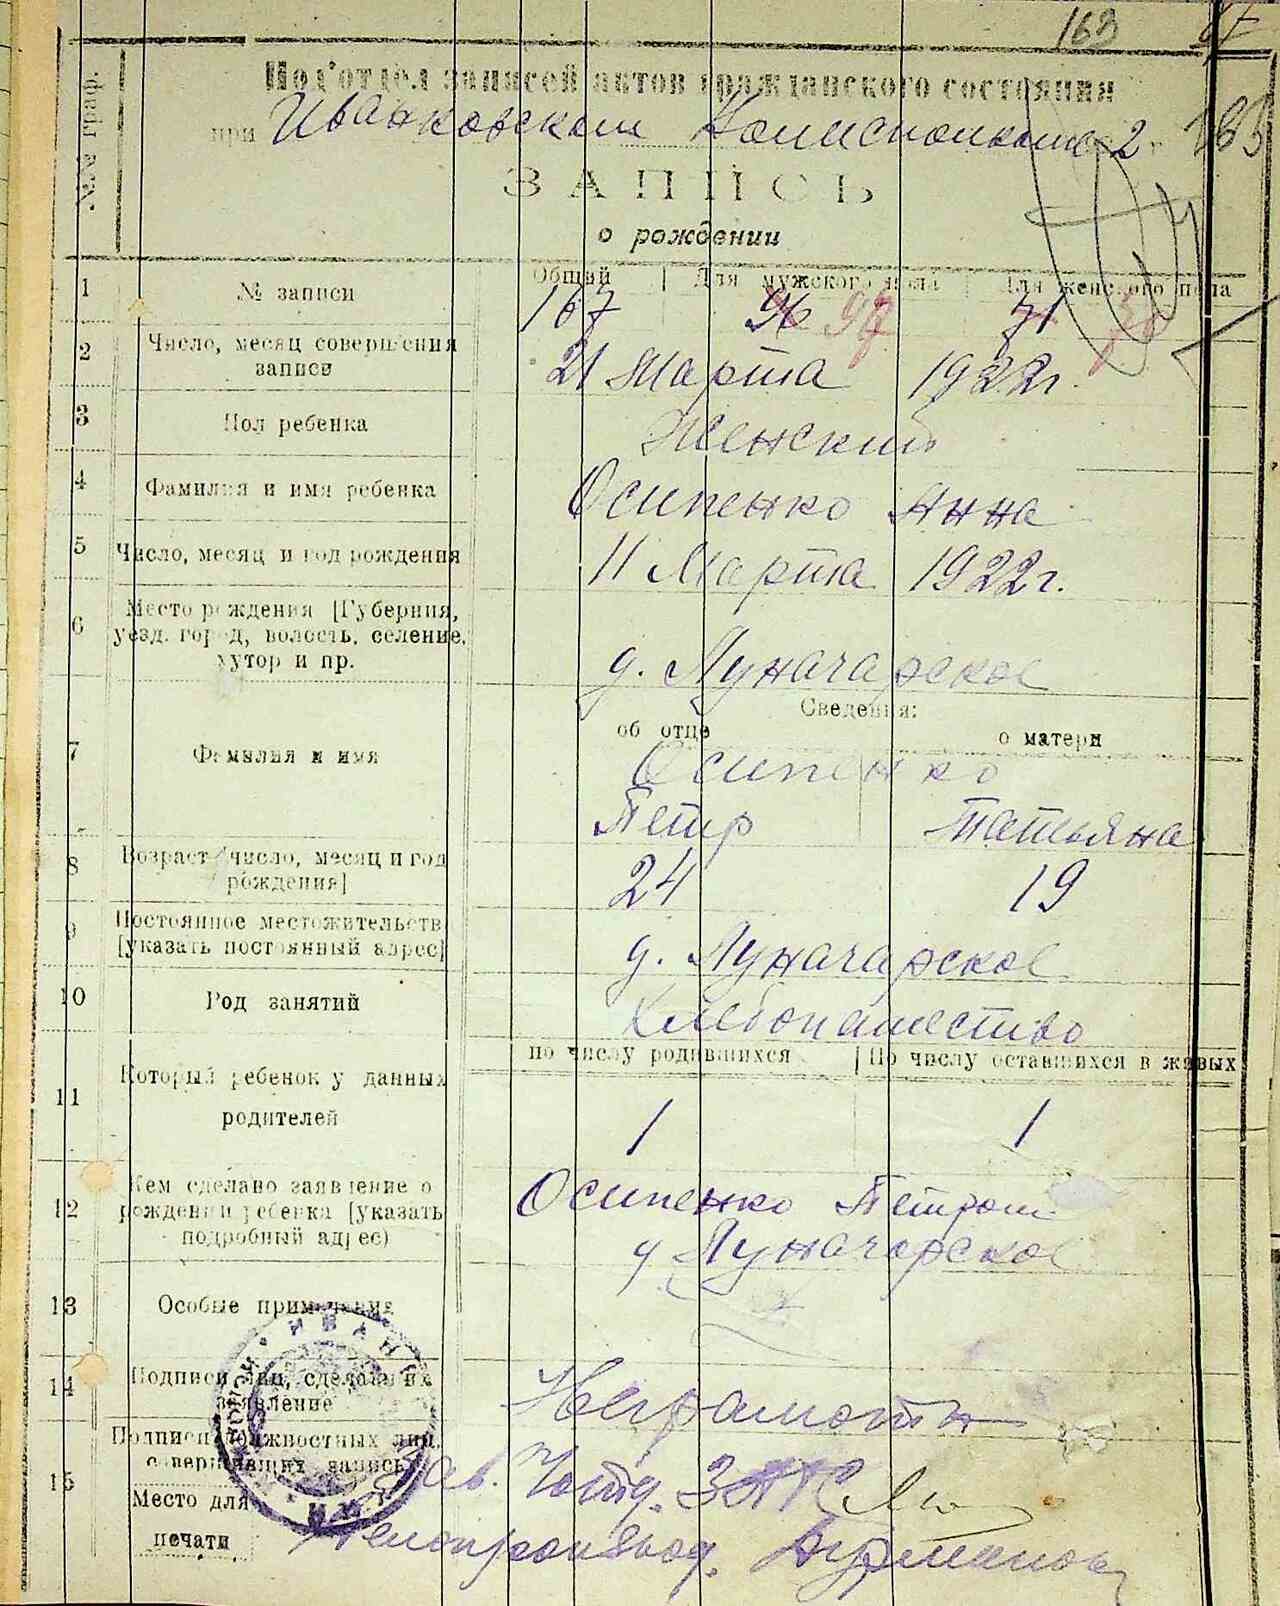 163
Под'отдел записей актов гражданского состояния
№№ граф.
при Иванковском 2
163
ЗАПИСЬ
о рождении
Общий Для мужского пола Для женского пола
1 № записи 167 96 97 71
2 Число, месяц совершения записи 21 Марта 1922г.
3 Пол ребенка Женский
4 Фамилия и имя ребенка Осипенко Анна
5 Число, месяц и год рождения 11 Марта 1922г.
6 Место рождения [Губерния,
уезд. город, волость, селение,
хутор и пр. д. Луначарское
Сведения:
об отце о матери
7 Фамилия и имя Осипенко
Петр Татьяна
8 Возраст (число, месяц и год
рождения] 24 19
9 Постоянное местожительств
[указать постоянный адрес] д. Луначарское
10 Род занятий Хлебопашество
по числу родившихся По числу оставшихся в живых
11 Который ребенок у данных
родителей 1 1
12 Кем сделано заявление о
рождении ребенка [указать
подробный адрес) Осипенко Петром
д Луначарское
13 Особые примечания
14 Подписи лиц, сделавших
заявление Неграмотн
15 Подписи должностных лиц,
совершивших запись Зав. ЗАГС
Место для
печати Делопроизвод.